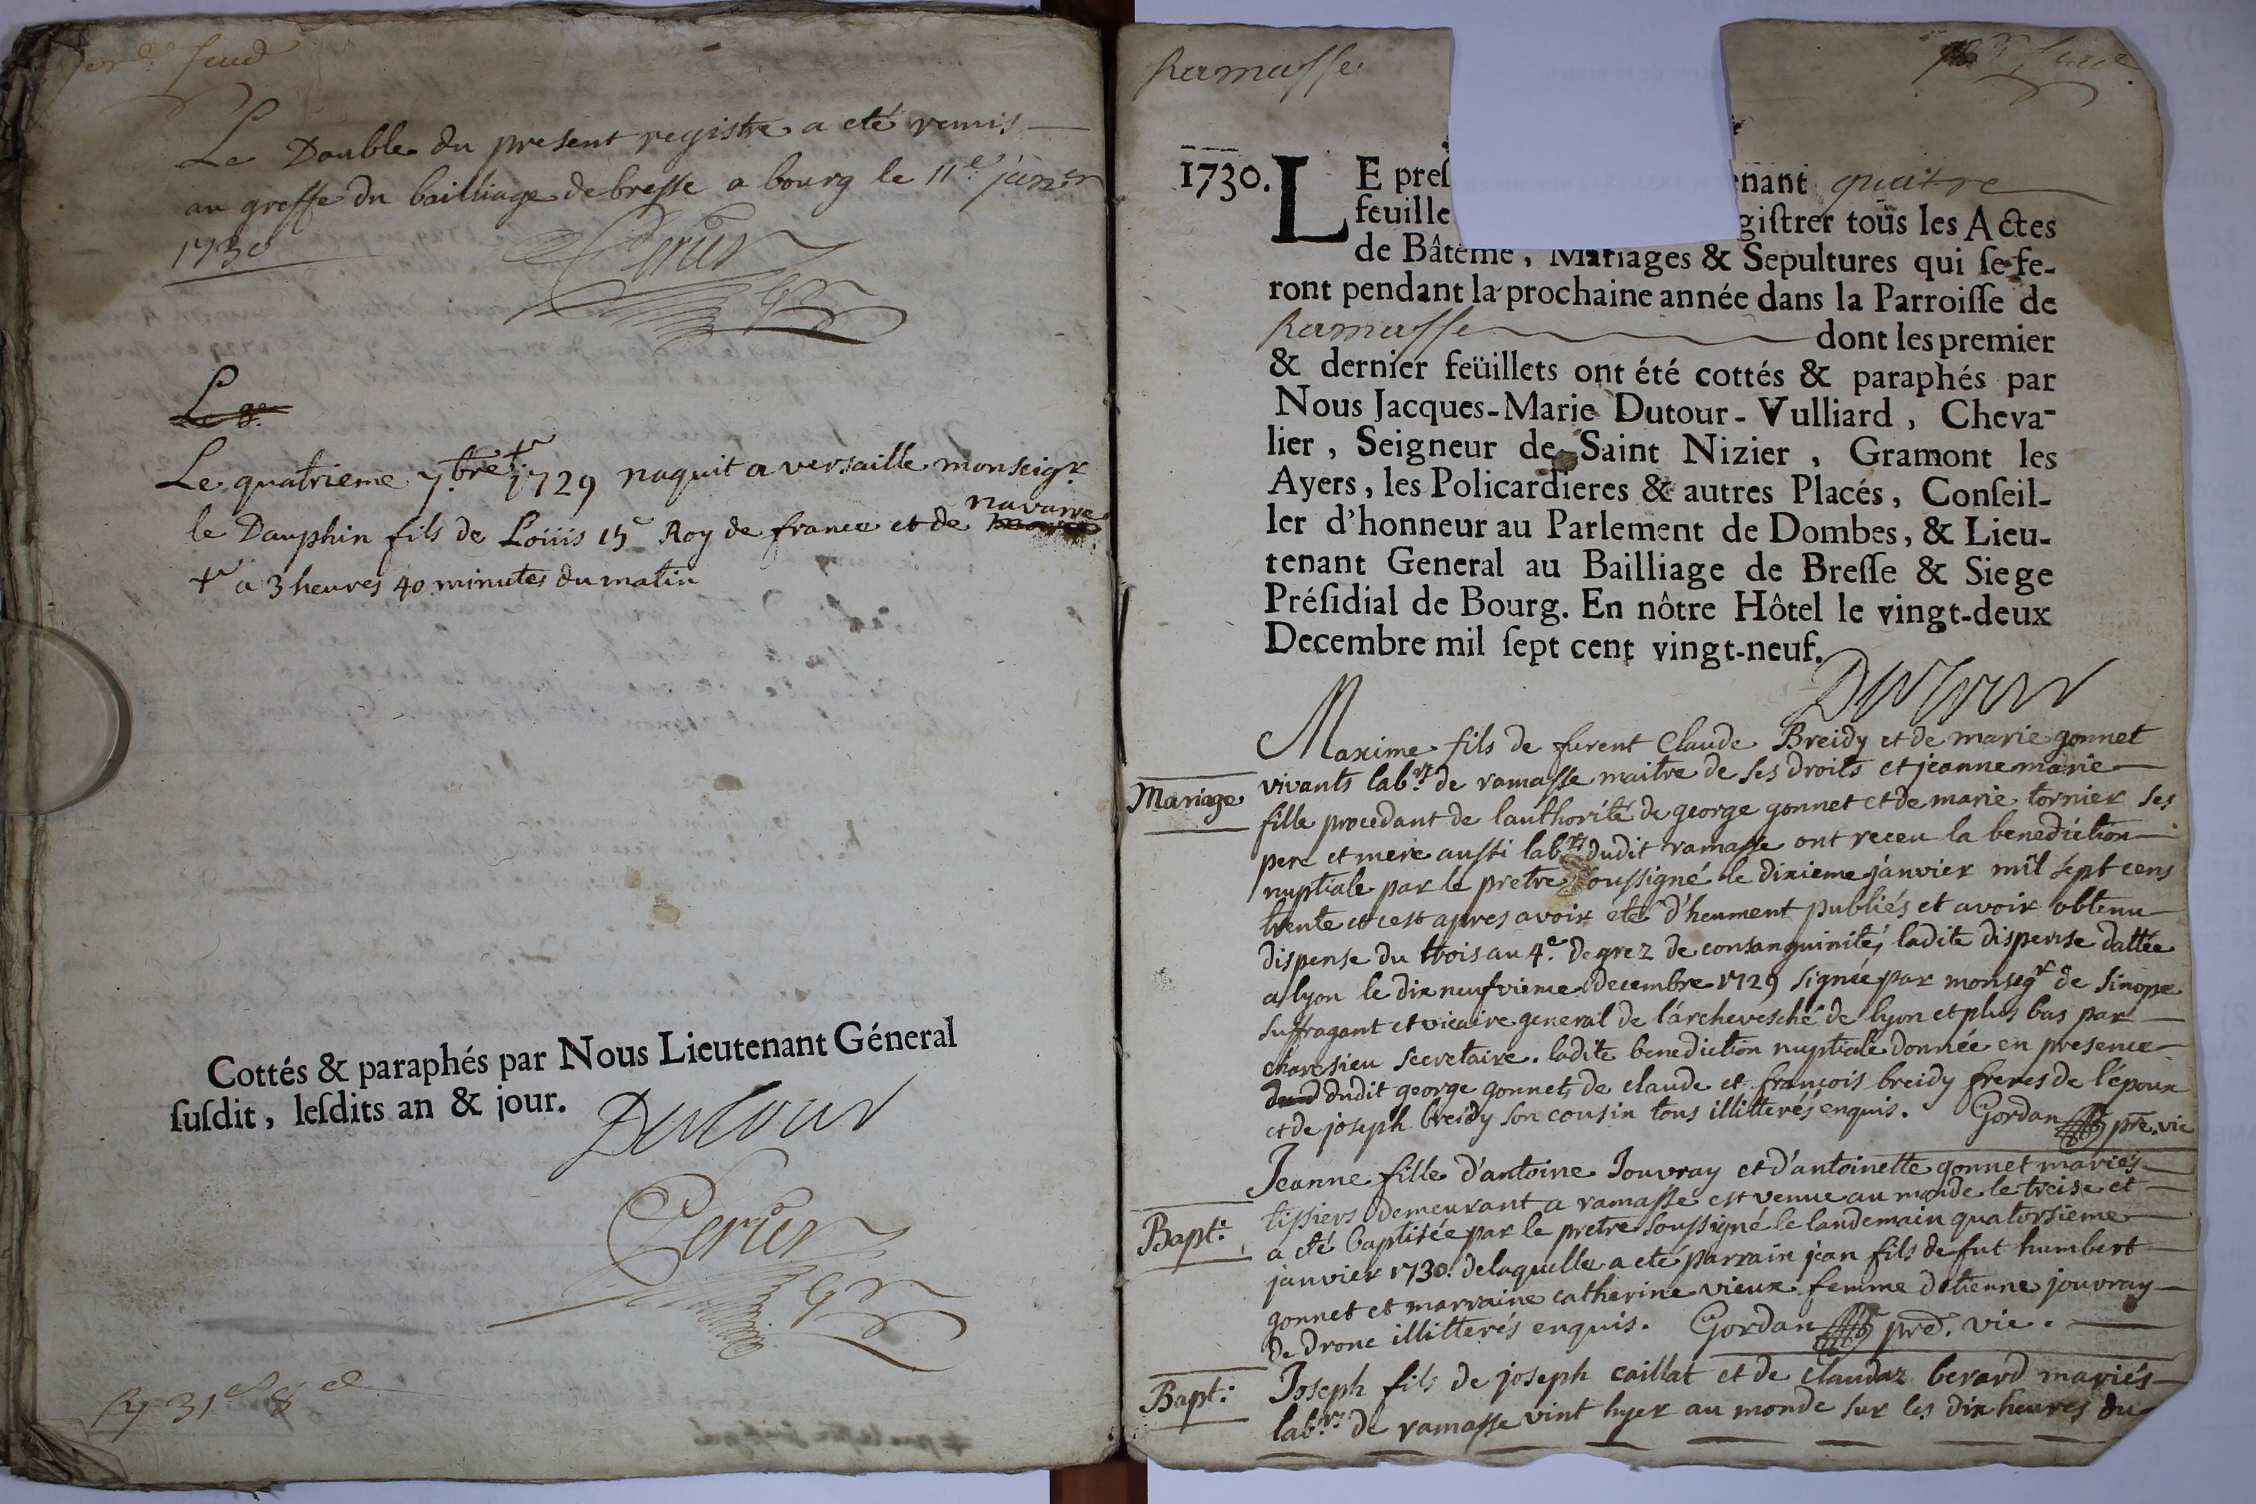 Le Double du present registre a eté remis
au greffe du bailliage de bresse a bourg le 11e janer
1730
Perier
Le 8e
Le quatrieme 7bre + 1729 naquit a versaille monseigr
le Dauphin fils de Loüis 15e Roy de france et de navarre
+ a 3 heures 40 minutes du matin
Cottés & paraphés par Nous Lieutenant Géneral
ſuſdit, leſdits an & jour.
Dutour
Perier
Ramasse
1730. LE preſ enant quatre
feuille giſtrer toūs les Actes
de Bâtême, Mariages & Sepultures qui ſe fe-
ront pendant la prochaine année dans la Parroiſſe de
Ramasse dont les premier
& dernier feüillets ont été cottés & paraphés par
Nous Jacques-Marie Dutour-Vulliard, Cheva-
lier, Seigneur de Saint Nizier, Gramont les
Ayers, les Policardieres & autres Placés, Conſeil-
ler d'honneur au Parlement de Dombes, & Lieu-
tenant General au Bailliage de Breſſe & Siege
Préſidial de Bourg. En nôtre Hôtel le vingt-deux
Decembre mil ſept cent vingt-neuf.
Dutour
Maxime fils de furent Claude Breidy et de marie gonnet
Mariage
vivants labrs de ramasse maitre de ses droits et jeanne marie
fille procedant de lauthorité de george gonnet et de marie tornier ses
pere et mere aussi labrs dudit ramasse ont receu la benediction
nuptiale par le pretre soussigné le dixieme janvier mil sept cens
trente et cest apres avoir eté d'heument publiés et avoir obtenu
dispense du trois au 4e degrez de consanguinité, ladite dispense dattée
a lyon le dix neufvieme decembre 1729 signée par monsegr de sinope
suffragant et vicaire general de l'archevesché de lyon et plus bas par
secretaire. ladite benediction nuptiale donnée en presence
dudit george gonnet, de claude et françois breidy freres de l'époux
et de joseph breidy son cousin tous illitterés enquis. Gordan pre. vic
Jeanne fille d'antoine Jouvray et d'antoinette gonnet mariés
tissiers demeurant a ramasse est venue au monde le treise et
Bapt:
a eté baptisée par le pretre soussigné le landemain quatorsieme
janvier 1730. delaquelle a eté parrain jean fils de fut humbert
gonnet et marraine catherine vieux femme detienne jouvray
de drone illitterés enquis. Gordan pre. vic.
Bapt:
Joseph fils de joseph caillat et de claudaz berard mariés
labrs de ramasse vint hyer au monde sur les dix heures du